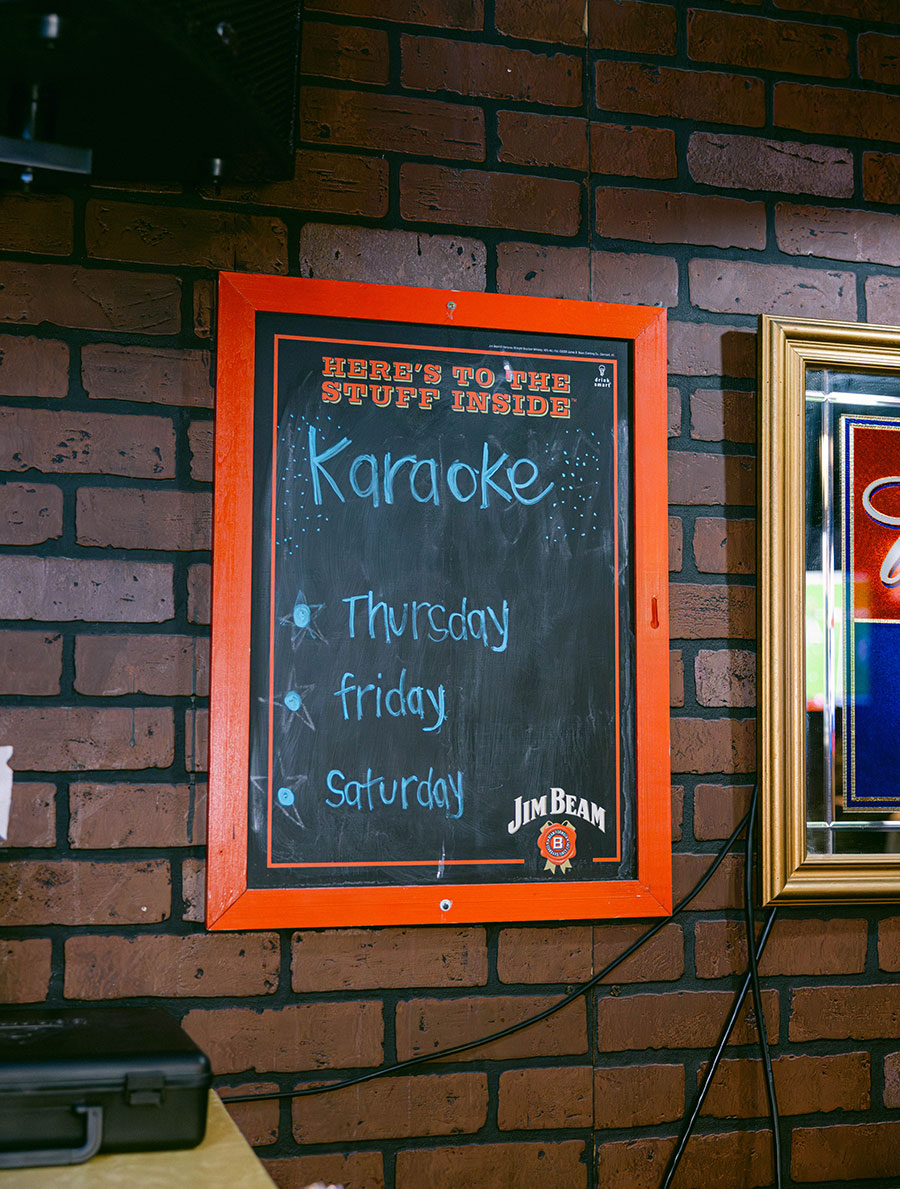 HERE'S TO THE
STUFF INSIDE
drink
smart
Karaoke
Thursday
friday
Saturday
JIM BEAM
B